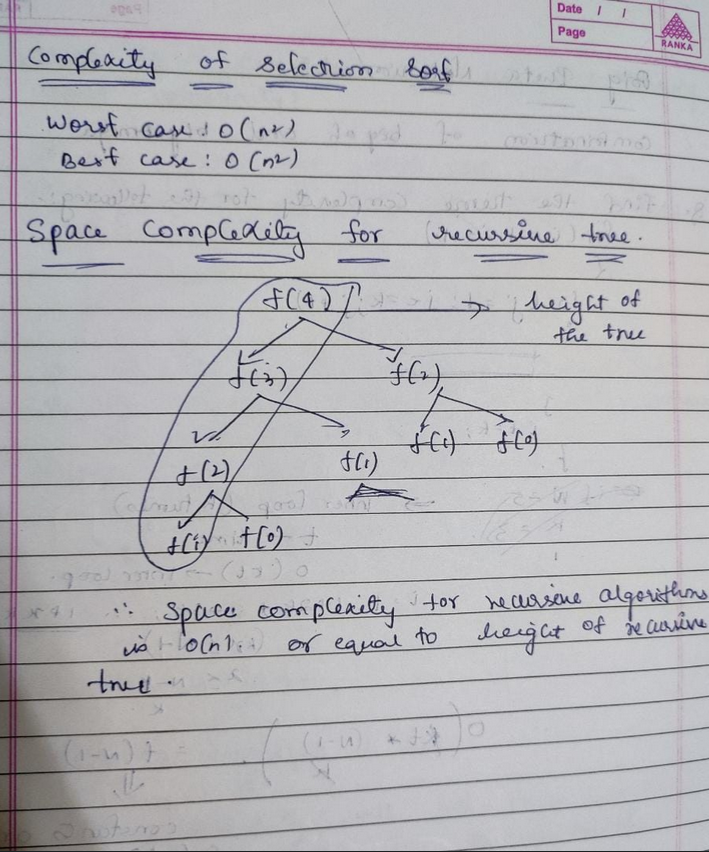 Date / /
Page
RANKA
Complexity of selection sort
Worst case : O(n²)
Best case : O(n²)
Space complexity for recursive tree.
f(4) → height of
the tree
f(3) f(2)
f(2) f(1) f(1) f(0)
f(1) f(0)
∴ Space complexity for recursive algorithms
is O(n) or equal to height of recursive
tree.